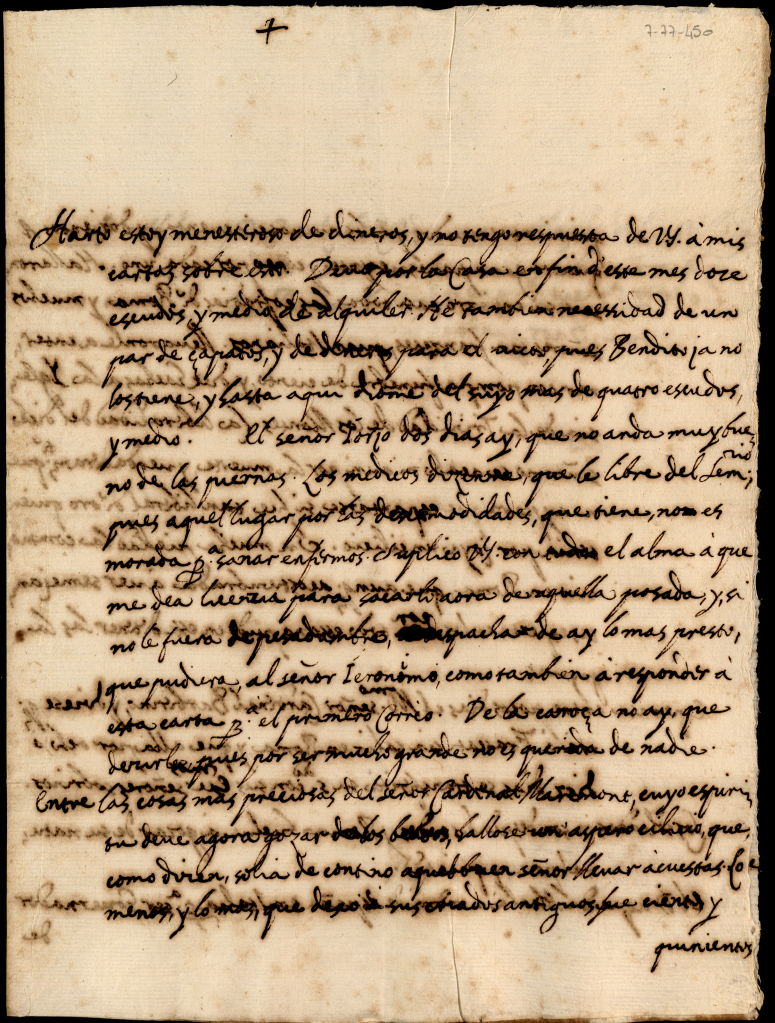 +
7-77-450
Harto estoy menesteroso de dineros, y no tengo respuesta de VS. à mis
cartas sobre esto. Deuo por la Casa en fin đ este mes doze
escudos, y medio de alquiler. He tambien necessidad de un
par de çapatos, y de dineros para el uicto, pues Bendito ja no
los tiene, y hasta aqui diome del suyo mas de quatro escudos,
y medio. El señor Torjo dos dias ay, que no anda muy bue-
no de las piernas. Los medicos dizenme, que le libre del Lem;
pues aquel lugar por las descomodidades, que tiene, non es
morada pª. sanar enfermos. Suplico VS. con todo el alma à que
me dea licencia para sacarlo aora de aquella posada, y, si
no le fuera de pesadumbre, despachar de ay lo mas presto,
que pudiera, al señor Ieronimo, como tambien à responder à
esta carta pª. el primero Correo. De la caroça no ay, que
dezirle, pues por ser mucho grande no es querida de nadie.
Entre las cosas mas preciosas del señor Cardenal Maremont, cuyo espiri-
tu deue agora gozar de los bienes, hallose un aspero cilicio, que,
como dizen, solia de contino aquel buen señor llevar à cuestas. Lo
menos, y lo mas, que dexo à sus criados antiguos fue ciento, y
quinientos